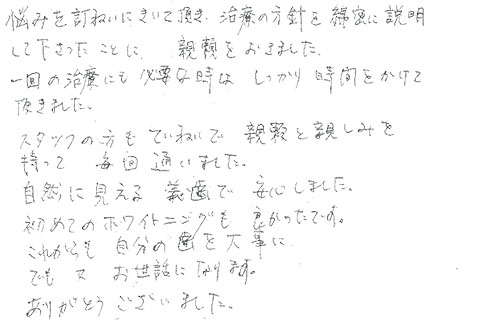 悩みを訂ねいにきいて頂き、治療の方針を綿密に説明
して下さったことに 親頼をおきました。
一回の治療にも必要な時は しっかり時間をかけて
頂きました。
スタッフの方もていねいで 親頼と親しみを
持って 毎回通いました。
自然に見える 義歯で 安心しました。
初めてのホワイトニングも 良かったです。
これからも 自分の歯を大事に
でも又 お世話になります。
ありがとうございました。